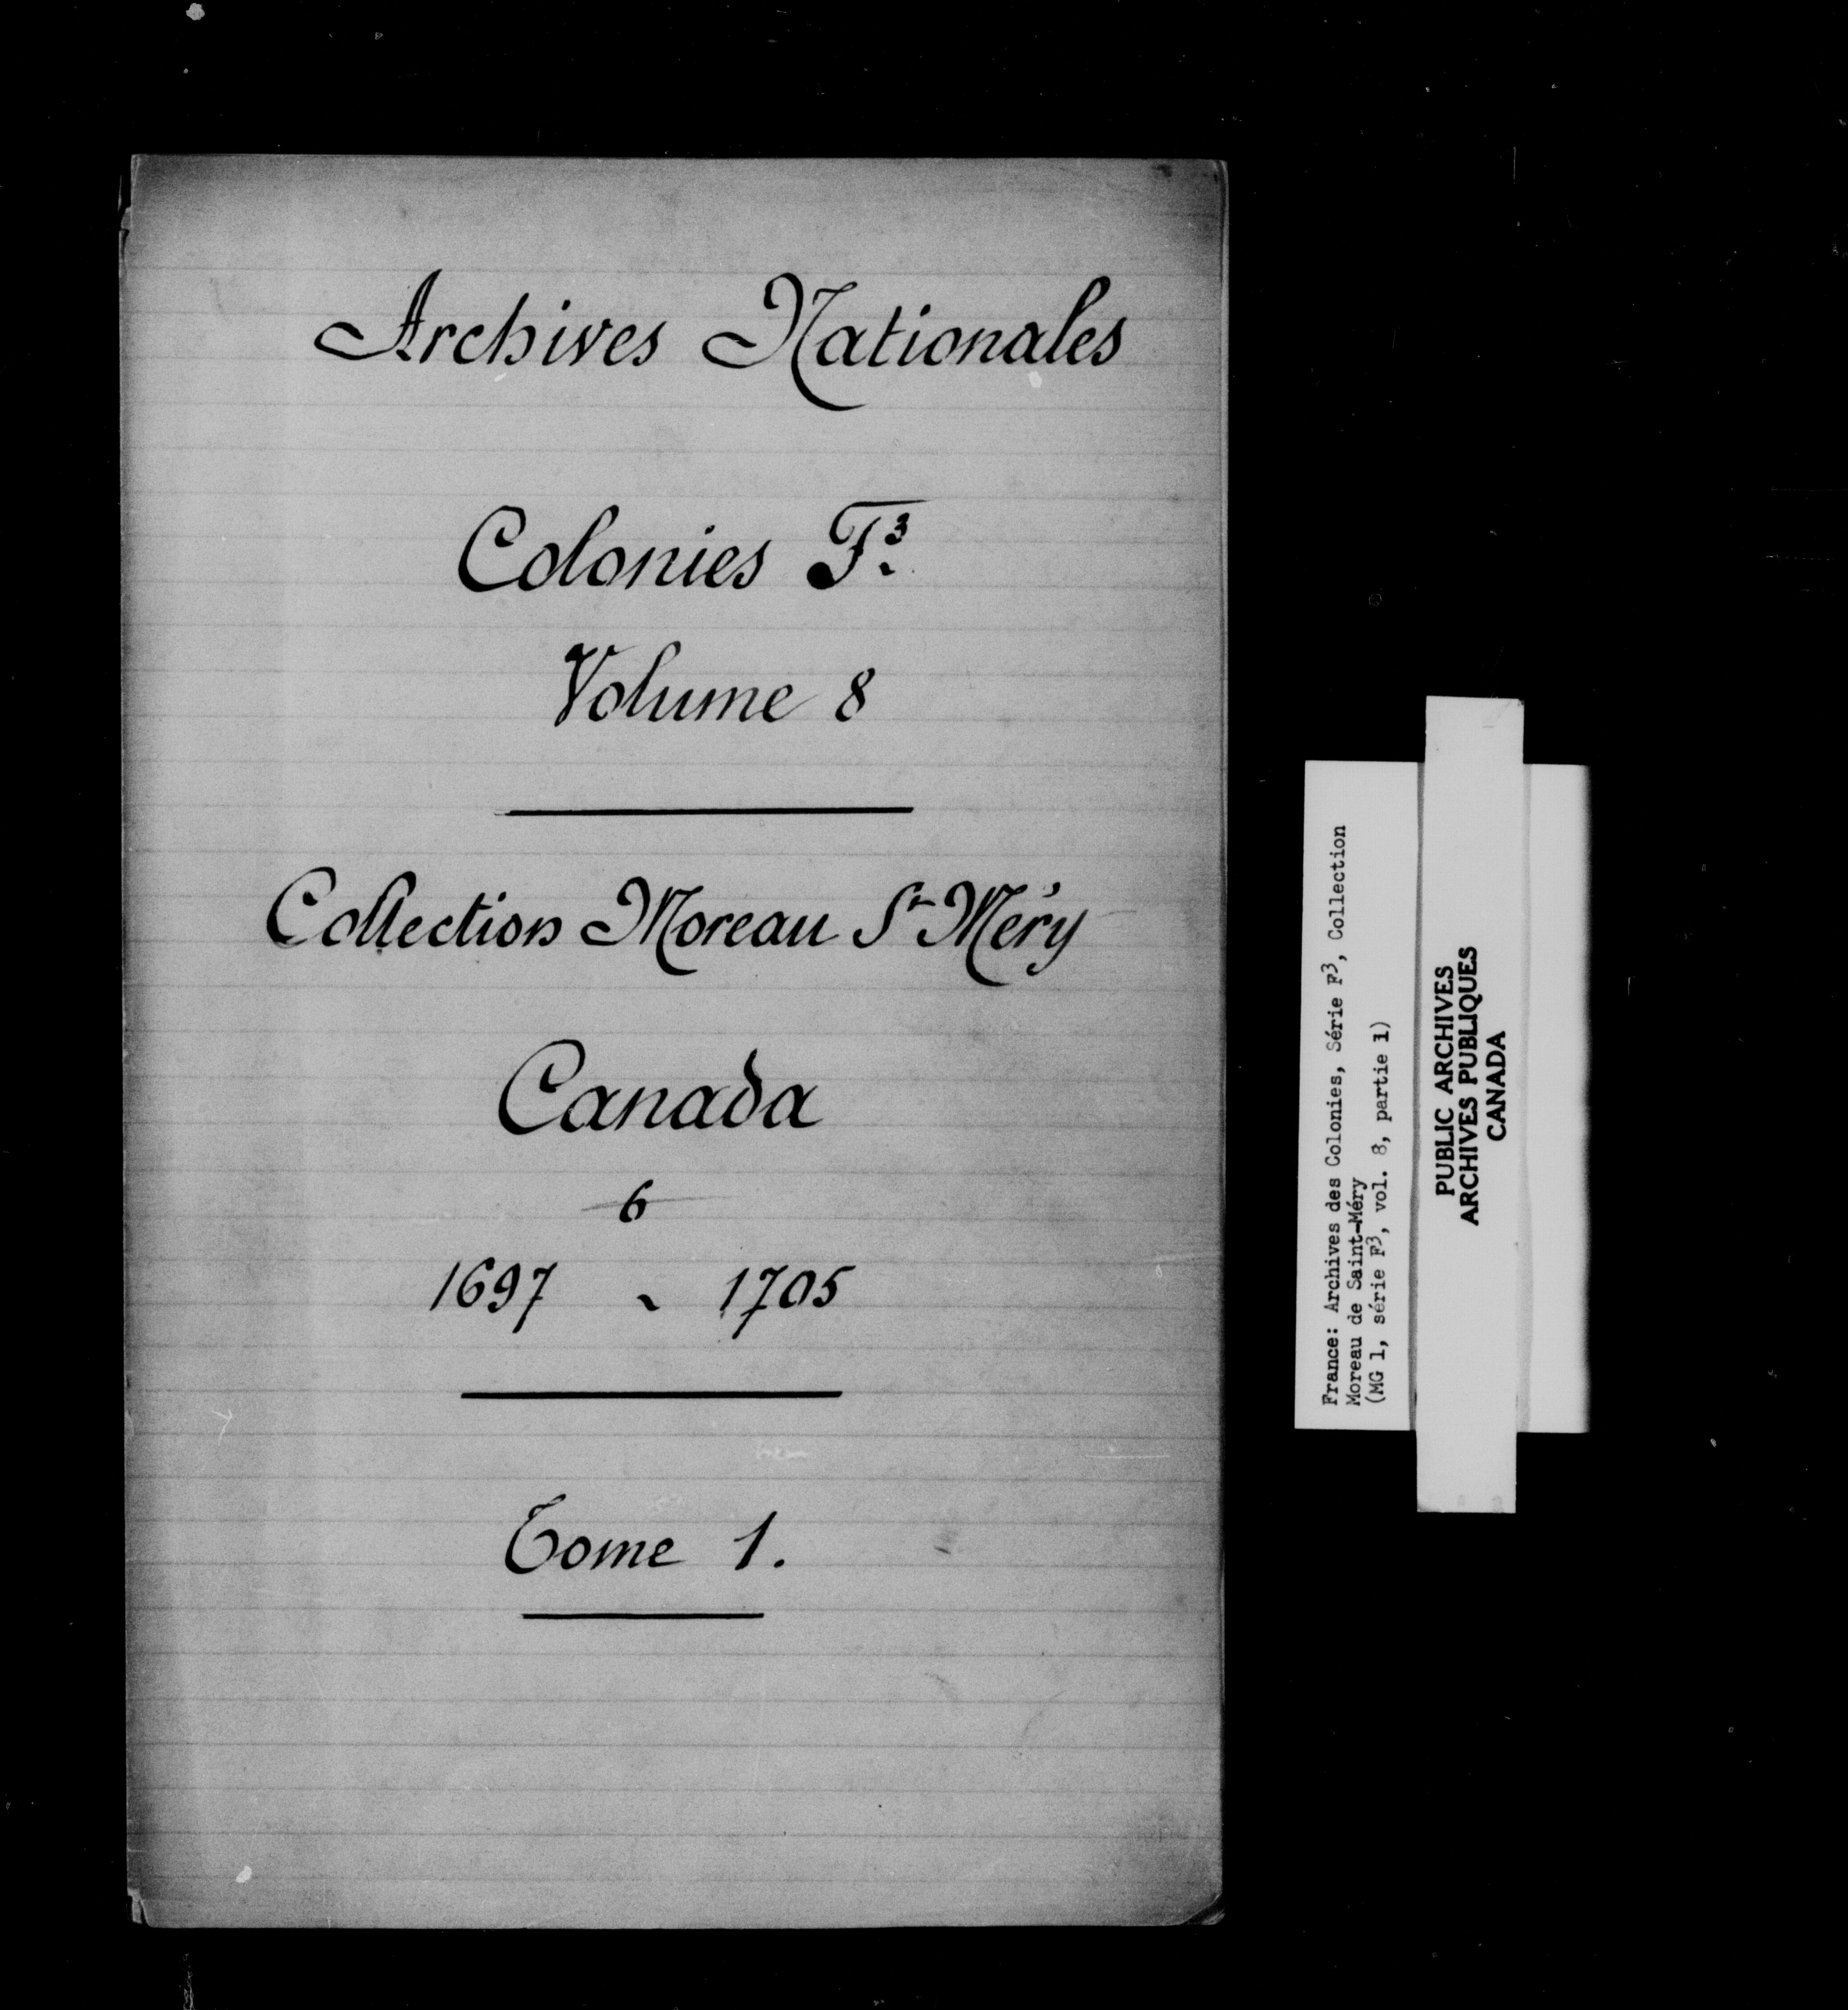 Archives Nationales
Colonies F³.
Volume 8
Collection Moreau St Méry
Canada
6
1697 - 1705
Tome 1.
France: Archives des Colonies, Série F³, Collection
Moreau de Saint-Méry
(MG 1, série F³, vol. 8, partie 1)
PUBLIC ARCHIVES
ARCHIVES PUBLIQUES
CANADA